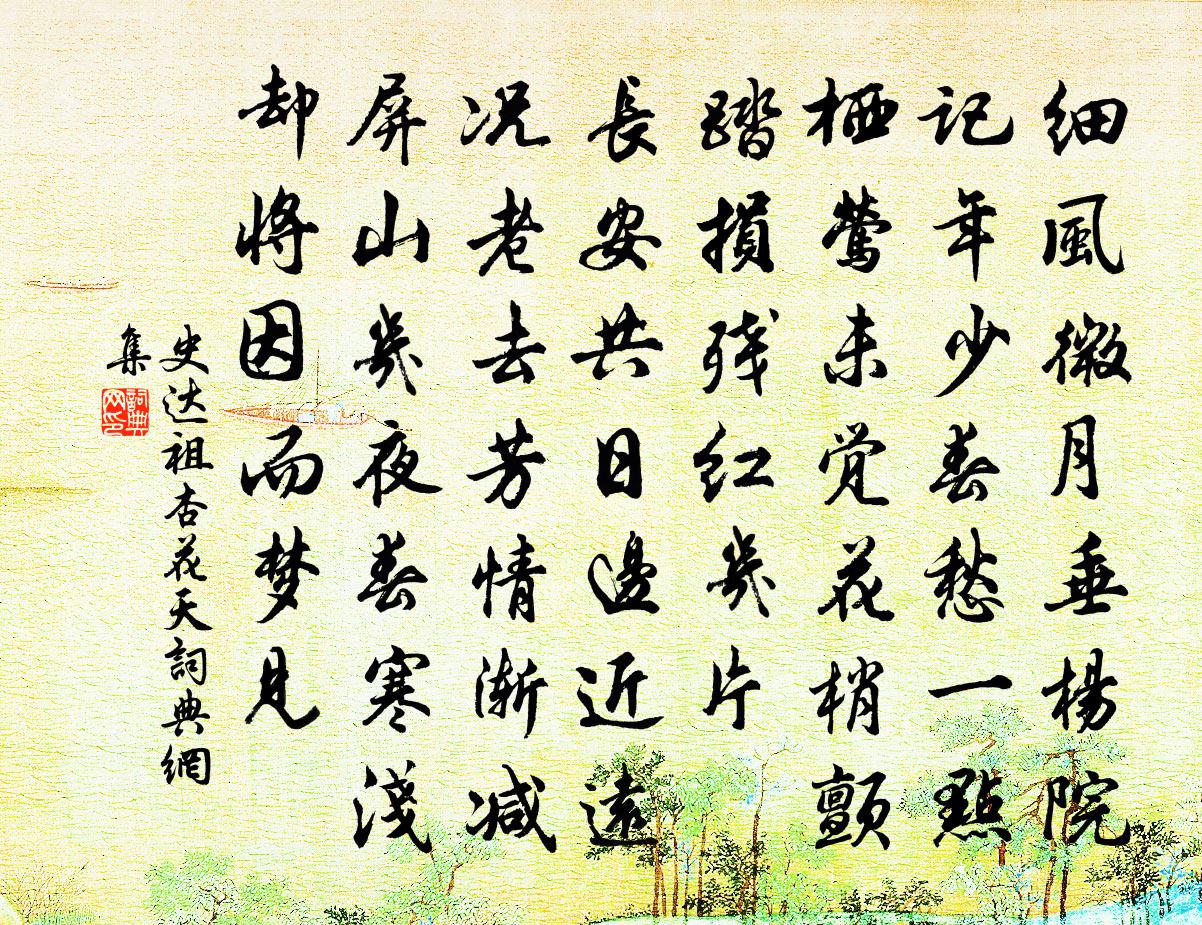 細風微月垂楊院
记年少春愁一點
栖莺未觉花梢顫
踏損残红幾片
長安共日邊近遠
况老去芳情渐减
屏山幾夜春寒淺
却将因而梦見
史达祖杏花天詞典網
集
詞典
网印